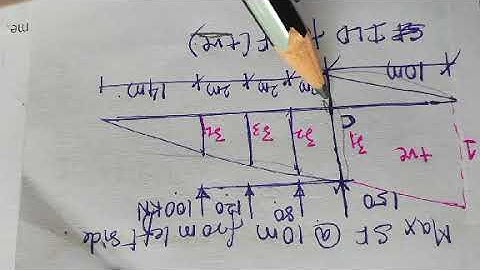 Max SF @ 10m from left side
150 80 120 100KN
1 +ve z1 z2 z3 z4
C
10m 2m 2m 2m 14m
ILD
SF (+ve)
me.